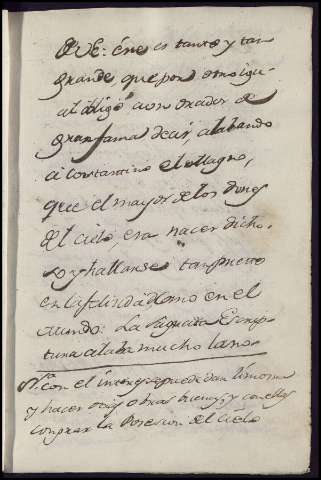 QUE: éne es tanto y tan
grande, que por otro igu-
al obligó a un orador de
gran fama decir, alabando
a Constantino el Magno,
que el mayor de los dones
del cielo, era nacer dicho-
so y hallarse tan presto
en la felicidad como en el
mundo: La Sagrada Escrip-
tura alaba mucho la no
con el interes puede dar limosna
y hacer otras obras buenas, y con ellas
comprar la Posesion del Cielo